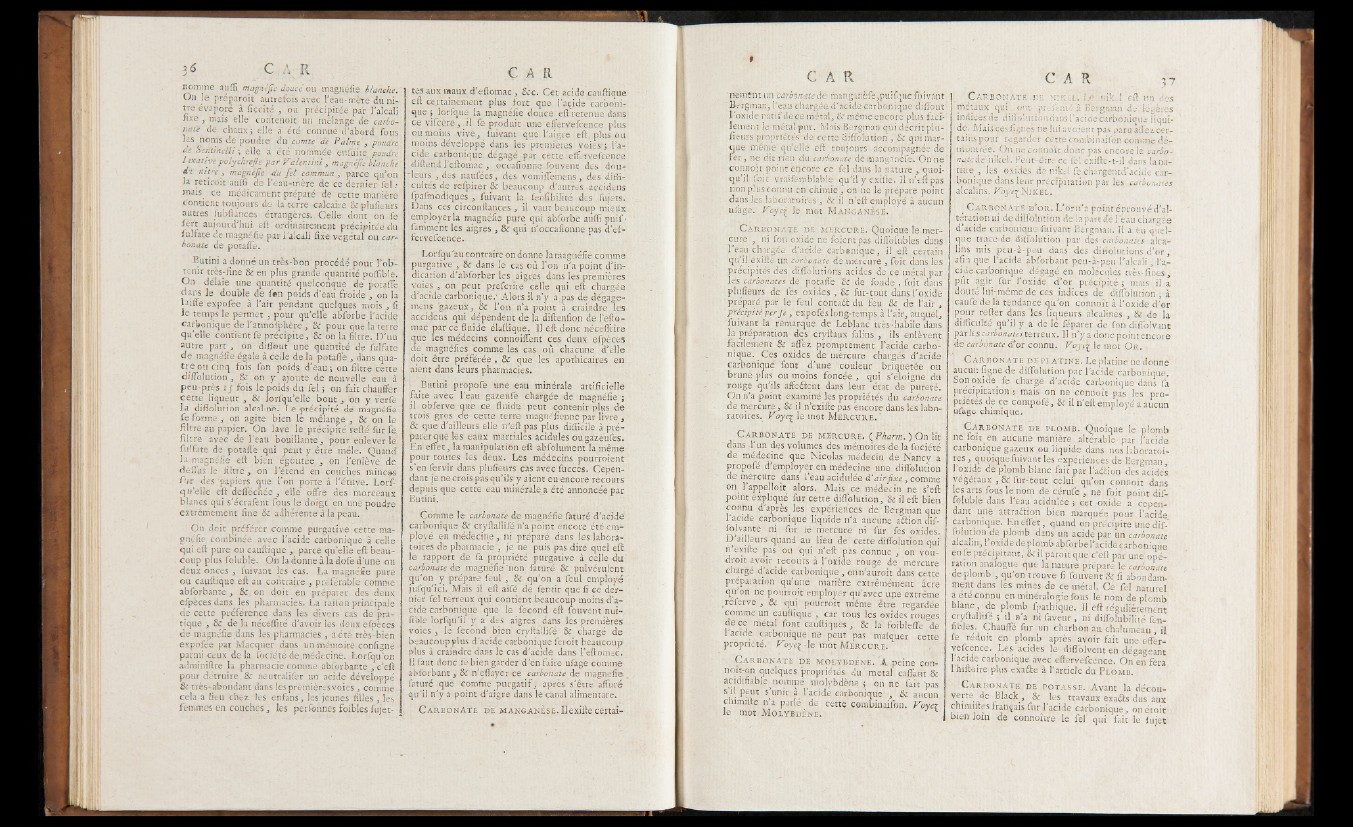 36 C A R
nommé aussi magnésie douce ou magnésie blanche.
On le préparoit autrefois avec l'eau-mère du ni-
tre évaporé à siccité, ou précipitée par l'alcali
fixe, mais elle contenoit un mélange de carbo-
nate de chaux; elle a été connue d'abord sous
les noms de poudre du comte de Palme, poudre
de Sentinelli; elle a été nommée ensuite poudre
laxative polychreste par Valentini, magnésie blanche
du nitre, magnésie du sel commun, parce qu'on
la retiroit aussi de l'eau-mère de ce dernier sel;
mais ce médicament préparé de cette manière
contient toujours de la terre calcaire & plusieurs
autres substances étrangères. Celle dont on se
sert aujourd'hui est ordinairement précipitée du
sulfate de magnésie par l'alcali fixe végétal ou car-
bonate de potasse.
Butini a donné un très-bon procédé pour l'ob-
tenir très-fine & en plus grande quantité possible.
On délaie une quantité quelconque de potasse
dans le double de son poids d'eau froide, on la
laisse exposée à l'air pendant quelques mois, si
le temps le permet; pour qu'elle absorbe l'acide
carbonique de l'atmosphère, & pour que la terre
qu'elle contient se précipite, & on la filtre. D'un
autre part, on dissout une quantité de sulfate
de magnésie égale à celle de la potasse, dans qua-
tre ou cinq fois son poids d'eau; on filtre cette
dissolution, & on y ajoute de nouvelle eau à
peu-près 15 fois le poids du sel; on fait chauffer
cette liqueur, & lorsqu'elle bout, on y verse
la dissolution alcaline. Le précipité de magnésie
se forme, on agite bien le mélange, & on le
filtre au papier. On lave le précipité resté sur le
filtre avec de l'eau bouillante, pour enlever le
sulfate de potasse qui peut y être mêlé. Quand
la magnésie est bien égoutée, on l'enlève de
dessus le filtre, on l'étend en couches minces
sur des papiers que l'on porte à l'étuve. Lors-
qu'elle est desséchée, elle offre des morceaux
blancs qui s'écrasent sous le doigt en une poudre
extrêmement fine & adhérente à la peau.
On doit préférer comme purgative cette ma-
gnésie combinée avec l'acide carbonique à celle
qui est pure ou caustique, parce qu'elle est beau-
coup plus soluble. On la donne à la dose d'une ou
deux onces, suivant les cas. La magnésie pure
ou caustique est au contraire, préférable comme
absorbante, & on doit en préparer des deux
espèces dans les pharmacies. La raison principale
de cette préférence dans les divers cas de pra-
tique, & de la nécessité d'avoir les deux espèces
de magnésie dans les pharmacies, a été très-bien
exposée par Macquer dans un mémoire consigné
parmi ceux de la société de médecine. Lorsqu'on
administre la pharmacie comme absorbante, c'est
pour détruire & neutraliser un acide développé
& très-abondant dans les premières voies, comme
cela a lieu chez les enfans, les jeunes filles, les
femmes en couches, les personnes foibles sujet-
C A R
tes aux maux d'estomac, &c. Cet acide caustique
est certainement plus fort que l'acide carboni-
que; lorsque la magnésie douce est retenue dans
ce viscère, il se produit une effervescence plus
ou moins vive, suivant que l'aigre est plus ou
moins développé dans les premières voies; l'a-
cide carbonique dégagé par cette effervescence
distend l'estomac, occasionne souvent des dou-
leurs, des nausées, des vomissemens, des diffi-
cultés de respirer & beaucoup d'autres accidens
spasmodiques, suivant la sensibilité des sujets.
Dans ces circonstances, il vaut beaucoup mieux
employer la magnésie pure qui absorbe aussi puis-
samment les aigres, & qui n'occasionne pas d'ef-
fervescence.
Lorsqu'au contraire on donne la magnésie comme
purgative, & dans le cas où l'on n'a point d'in-
dication d'absorber les aigres dans les premières
voies, on peut prescrire celle qui est chargée
d'acide carbonique. Alors il n'y a pas de dégage-
mens gazeux, & l'on n'a point à craindre les
accidens qui dépendent de la distension de l'esto-
mac par ce fluide élastique. Il est donc nécessaire
que les médecins connoissent ces deux espèces
de magnésies comme les cas où chacune d'elle
doit être préférée, & que les apothicaires en
aient dans leurs pharmacies.
Butini propose une eau minérale artificielle
faite avec l'eau gazeuse chargée de magnésie;
il observe que ce fluide peut contenir plus de
trois gros de cette terre magnésienne par livre,
& que d'ailleurs elle n'est pas plus difficile à pré-
parer que les eaux martiales acidules ou gazeuses.
En effet, la manipulation est absolument la même
pour toutes les deux. Les médecins pourroient
s'en servir dans plusieurs cas avec succès. Cepen-
dant je ne crois pas qu'ils y aient eu encore recours
depuis que cette eau minérale a été annoncée par
Butini.
Comme le carbonate de magnésie saturé d'acide
carbonique & crystallisé n'a point encore été em-
ployé en médecine, ni préparé dans les labora-
toires de pharmacie, je ne puis pas dire quel est
le rapport de sa propriété purgative à celle du
carbonate de magnésie non saturé & pulvérulent
qu'on y prépare seul, & qu'on a seul employé
jusqu'ici. Mais il est aisé de sentir que si ce der-
nier sel terreux qui contient beaucoup moins d'a-
cide carbonique que le second est souvent nui-
sible lorsqu'il y a des aigres dans les premières
voies, le second bien crystallisé & chargé de
beaucoup plus d'acide carbonique seroit beaucoup
plus à craindre dans le cas d'acide dans l'estomac.
Il faut donc se bien garder d'en faire usage comme
absorbant, & n'essayer ce carbonate de magnésie
saturé que comme purgatif, après s'être assuré
qu'il n'y a point d'aigre dans le canal alimentaire.
CARBONATE DE MANGANÈSE. Il existe certai-
C A R
nement un carbonate de manganèse, puisque suivant
Bergman, l'eau chargée d'acide carbonique dissout
l'oxide natif de ce métal, & même encore plus faci-
lement le métal pur. Mais Bergman qui décrit plu-
sieurs propriétés de cette dissolution, & qui mar-
que même qu'elle est toujours accompagnée de
fer, ne dit rien du carbonate de manganèse. On ne
connoît point encore ce sel dans la nature, quoi-
qu'il soit vraisemblable qu'il y existe. Il n'est pas
non plus connu en chimie, on ne le prépare point
dans les laboratoires, & il n'est employé à aucun
usage. Voyez le mot MANGANÈSE.
CARBONATE DE MERCURE. Quoique le mer-
cure, ni son oxide ne soient pas dissolubles dans
l'eau chargée d'acide carbonique, il est certain
qu'il existe un carbonate de mercure, soit dans les
précipités des dissolutions acides de ce métal par
les carbonates de potasse & de soude, soit dans
plusieurs de ses oxides, & sur-tout dans l'oxide
préparé par le seul contact du feu & de l'air,
précipité per se, exposés long-temps à l'air, auquel,
suivant la remarque de Leblanc très-habile dans
la préparation des crystaux salins, ils enlèvent
facilement & assez promptement l'acide carbo-
nique. Ces oxides de mercure chargés d'acide
carbonique sont d'une couleur briquetée ou
brune plus ou moins foncée, qui s'éloigne du
rouge qu'ils affectent dans leur état de pureté.
On n'a point examiné les propriétés du carbonate
de mercure, & il n'existe pas encore dans les labo-
ratoires. Voyez le mot MERCURE.
CARBONATE DE MERCURE. ( Pharm. ) On lit
dans l'un des volumes des mémoires de la société
de médecine que Nicolas médecin de Nancy a
proposé d'employer en médecine une dissolution
de mercure dans l'eau acidulée d'air fixe, comme
on l'appelloit alors. Mais ce médecin ne s'est
point expliqué sur cette dissolution, & il est bien
connu d'après les expériences de Bergman que
l'acide carbonique liquide n'a aucune action dis-
solvante ni sur le mercure ni sur ses oxides.
D'ailleurs quand au lieu de cette dissolution qui
n'existe pas ou qui n'est pas connue, on vou-
droit avoir recours à l'oxide rouge de mercure
chargé d'acide carbonique, on n'auroit dans cette
préparation qu'une matière extrêmement âcre
qu'on ne pourroit employer qu'avec une extrême
réserve, & qui pourroit même être regardée
comme un caustique, car tous les oxides rouges
de ce métal sont caustiques, & la foiblesse de
l'acide carbonique ne peut pas masquer cette
propriété. Voyez le mot MERCURE.
CARBONATE DE MOLYBDÈNE. A peine con-
noît-on quelques propriétés du métal cassant &
acidifiable nommé molybdène; on ne sait pas
s'il peut s'unir à l'acide carbonique, & aucun
chimiste n'a parlé de cette combinaison. Voyez
le mot MOLYBDÈNE.
C A R 37
CARBONATE DE NIKEL. Le nikel est un des
métaux qui ont présenté à Bergman de légères
indices de dissolution dans l'acide carbonique liqui-
de. Mais ces signes ne lui avoient pas paru assez cer-
tains pour regarder cette combinaison comme dé-
montrée. On ne connoît donc pas encore le carbo-
nate de nikel. Peut-être ce sel existe-t-il dans la na-
ture, les oxides de nikel se chargent d'acide car-
bonique dans leur précipitation par les carbonates
alcalins. Voyez NIKEL.
CARBONATE D'OR. L'or n'a point éprouvé d'al-
tération ni de dissolution de la part de l'eau chargée
d'acide carbonique suivant Bergman. Il a eu quel-
que trace de dissolution par des carbonates alca-
lins mis peu-à-peu dans des dissolutions d'or,
afin que l'acide absorbant peu-à-peu l'alcali, l'a-
cide carbonique dégagé en molécules très-fines,
pût agir sur l'oxide d'or précipité; mais il a
douté lui-même de ces indices de dissolution, à
cause de la tendance qu'on connoît à l'oxide d'or
pour rester dans les liqueurs alcalines, & de la
difficulté qu'il y a de le séparer de son dissolvant
par les carbonates terreux. Il n'y a donc point encore
de carbonate d'or connu. Voyez le mot OR.
CARBONATE DE PLATINE. Le platine ne donne
aucun signe de dissolution par l'acide carbonique.
Son oxide se charge d'acide carbonique dans sa
précipitation; mais on ne connoît pas les pro-
priétés de ce composé, & il n'est employé à aucun
usage chimique.
CARBONATE DE PLOMB. Quoique le plomb
ne soit en aucune manière altérable par l'acide
carbonique gazeux ou liquide dans nos laboratoi-
res, quoique suivant les expériences de Bergman,
l'oxide de plomb blanc fait par l'action des acides
végétaux, & sur-tout celui qu'on connoît dans
les arts sous le nom de céruse, ne soit point dis-
soluble dans l'eau acidulée; cet oxide a cepen-
dant une attraction bien marquée pour l'acide
carbonique. En effet, quand on précipite une dis-
solution de plomb dans un acide par un carbonate
alcalin, l'oxide de plomb absorbe l'acide carbonique
en se précipitant, & il paroît que c'est par une opé-
ration analogue que la nature prépare le carbonate
de plomb, qu'on trouve si souvent & si abondam-
ment dans les mines de ce métal. Ce sel naturel
a été connu en minéralogie sous le nom de plomb
blanc, de plomb spathique. Il est régulièrement
crystallisé; il n'a ni saveur, ni dissolubilité sen-
sibles. Chauffé sur un charbon au chalumeau, il
se réduit en plomb après avoir fait une effer-
vescence. Les acides le dissolvent en dégageant
l'acide carbonique avec effervescence. On en fera
l'histoire plus exacte à l'article du PLOMB.
CARBONATE DE POTASSE. Avant la décou-
verte de Black, & les travaux exacts dus aux
chimistes français sur l'acide carbonique, on étoit
bien loin de connoître le sel qui fait le sujet